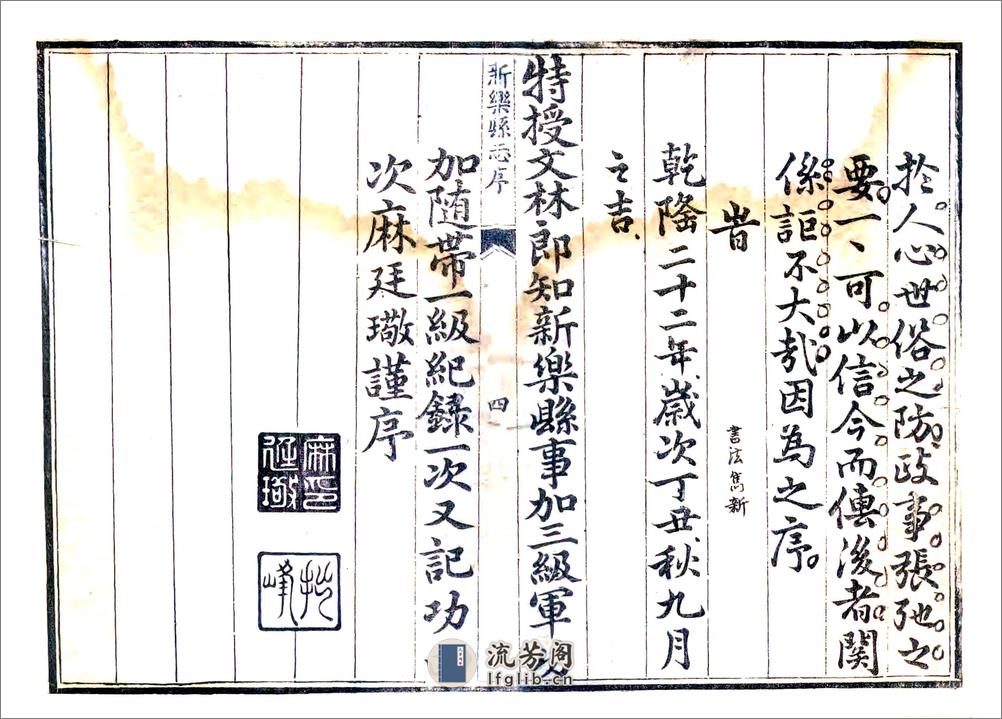 於人心世俗之防政事張弛之
要一丶可以信今而傳後者関
係詎不大哉因為之序
旹
書法雋新
乾隆二十二年歲次丁丑秋九月
之吉
特授文林郎知新樂縣事加三級軍功
新樂縣志序
四
加隨帶一級紀錄一次又記功
次麻廷璥謹序
麻廷璥印
峰
流芳阁
lfglib.cn